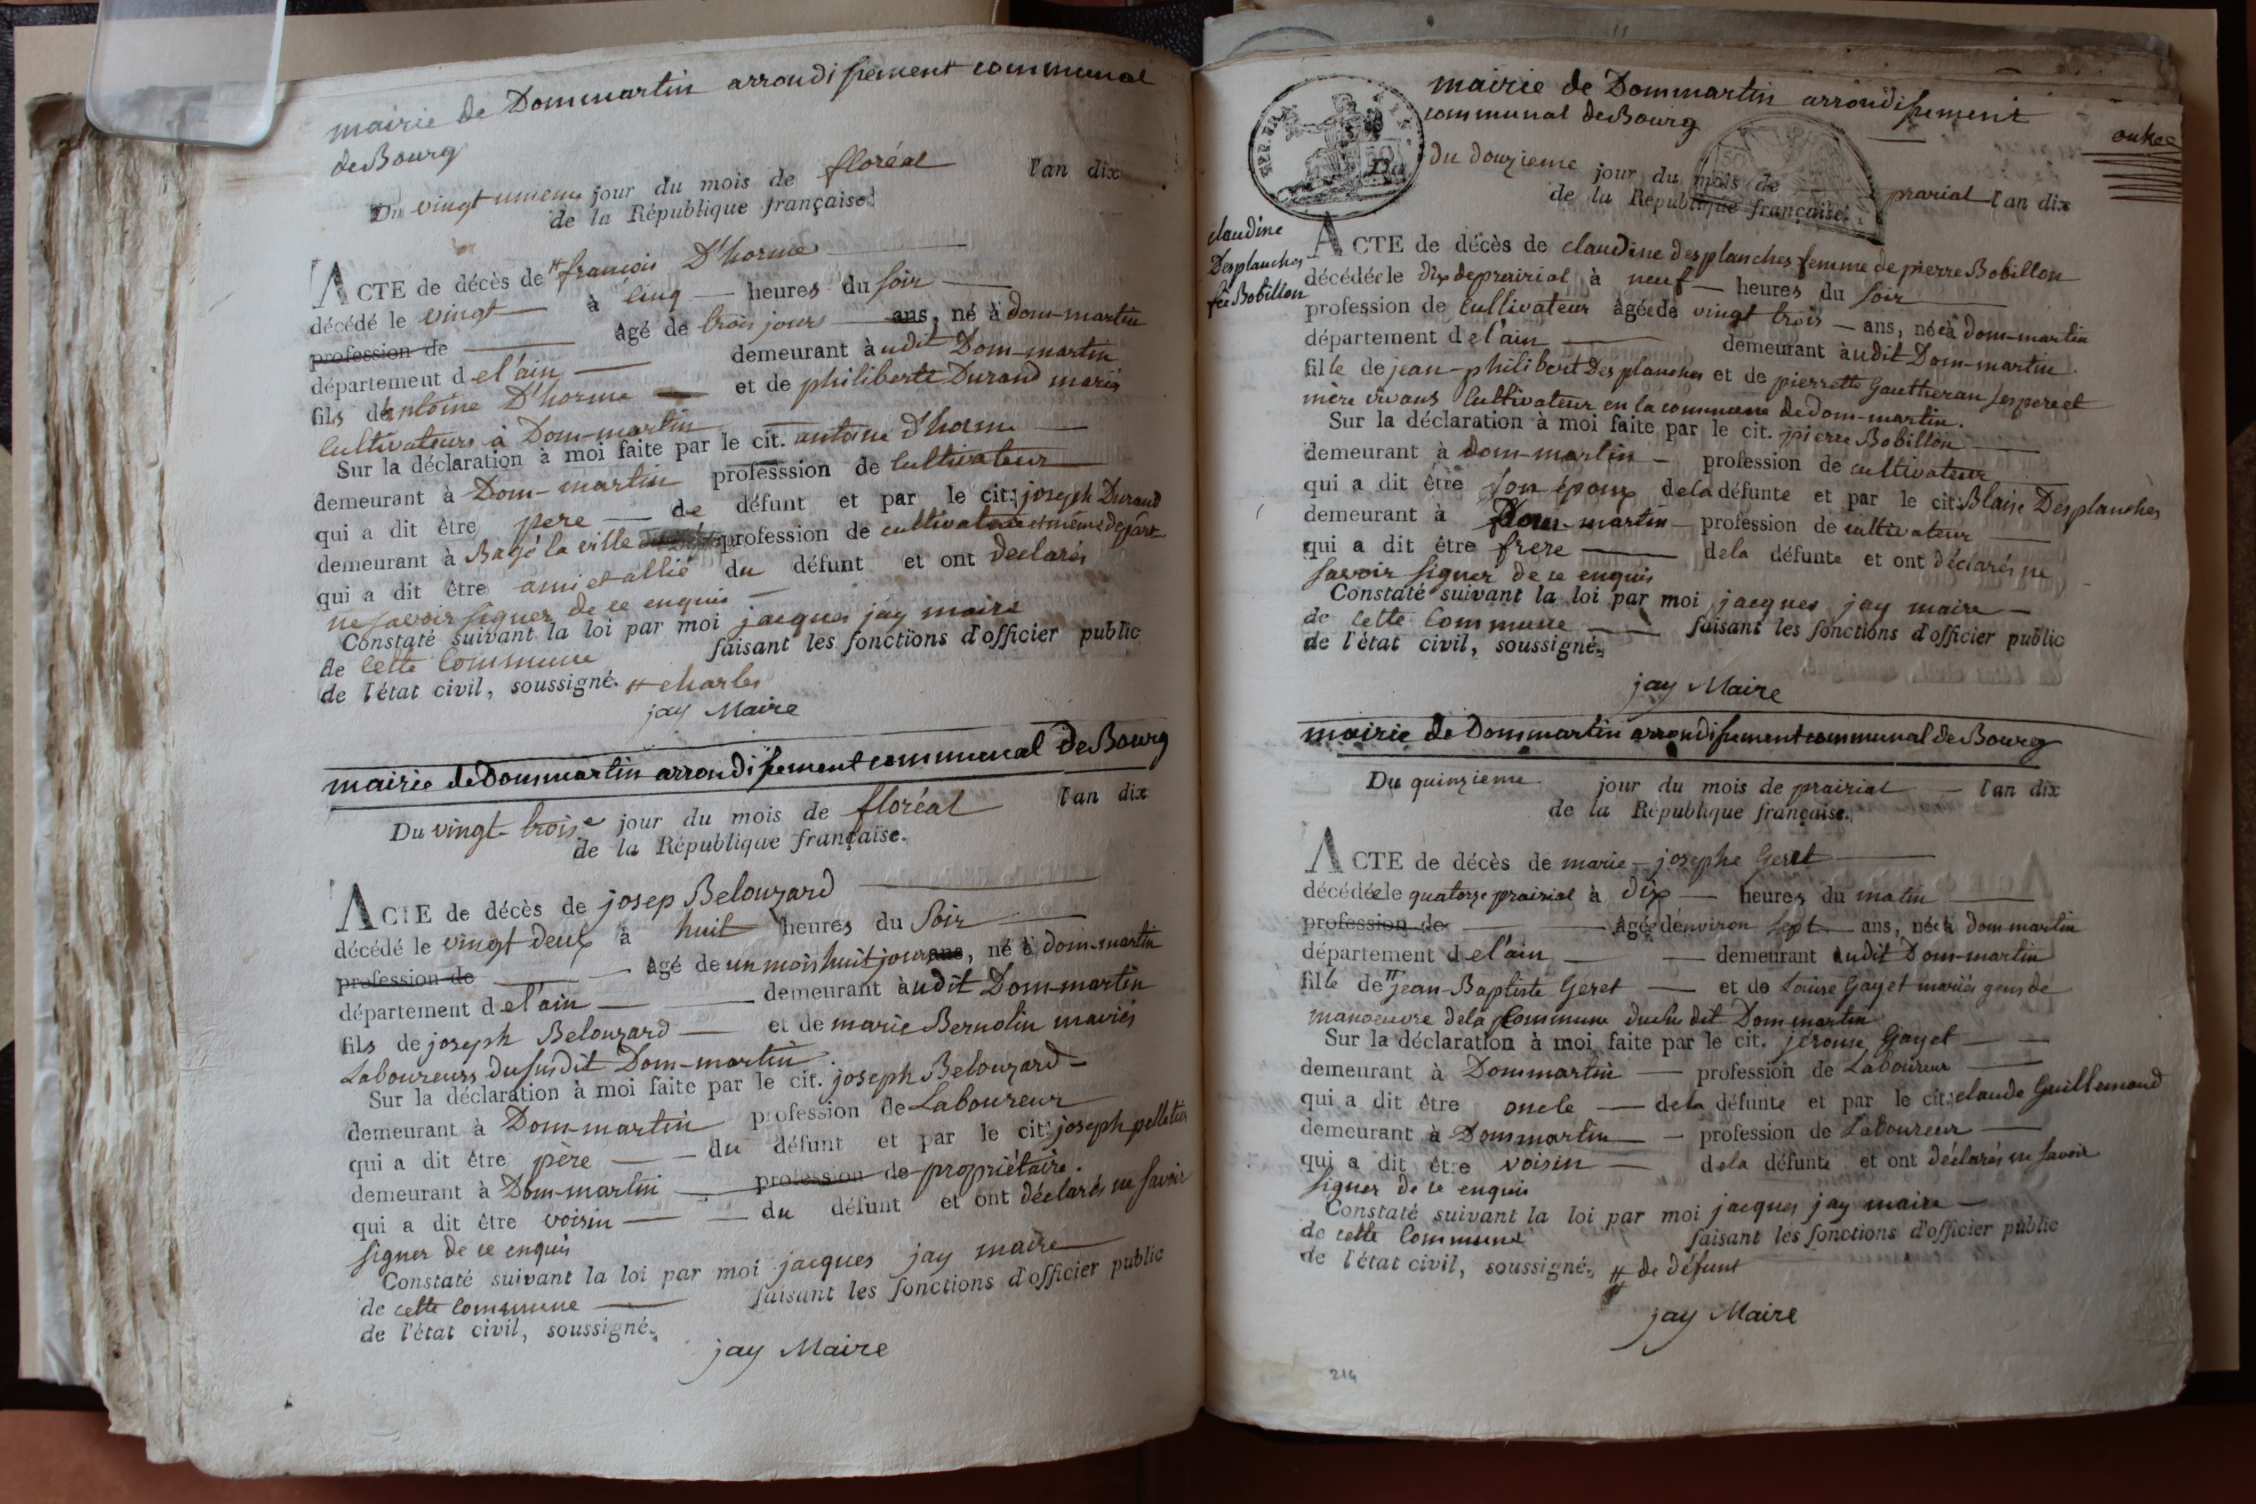 mairie de Dommartin arrondissement communal
de Bourg
Du vingt unieme jour du mois de floréal l'an dix
de la République française.
ACTE de décès de # francois D'horme
décédé le vingt à cinq heures du soir
profession de âgé de trois jours ans, né à dom-martin
département de l'ain demeurant audit Dom-martin
fils de antoine D'horme et de philiberte Durand mariés
cultivateurs à Dom-martin
Sur la déclaration à moi faite par le cit. antoine d'horme
demeurant à Dom-martin professsion de cultivateur
qui a dit être pere de défunt et par le cit. joseph Durand
demeurant à Bagé la ville profession de cultivateur et même départ
qui a dit être ami et allié du défunt et ont declarés
ne savoir signer de ce enquis
Constaté suivant la loi par moi jacques jay maire
de cette Commune faisant les fonctions d'officier public
de l'état civil, soussigné. # charles
jay Maire
mairie de Dommartin arrondissement communal de Bourg
Du vingt-troise jour du mois de floréal l'an dix
de la République française.
ACTE de décès de josep Belouzard
décédé le vingt deux à huit heures du soir
profession de âgé de un mois huit jours ans, né à dom-martin
département de l'ain demeurant audit Dom-martin
fils de joseph Belouzard et de marie Bernolin mariés
Laboureurs du susdit Dom-martin.
Sur la déclaration à moi faite par le cit. joseph Belouzard
demeurant à Dom-martin profession de Laboureur
qui a dit être père du défunt et par le cit. joseph pelletier
demeurant à Dom-martin profession de propriétaire.
qui a dit être voisin du défunt et ont déclarés ne savoir
signer de ce enquis
Constaté suivant la loi par moi jacques jay maire
de cette Commune faisant les fonctions d'officier public
de l'état civil, soussigné.
jay Maire
mairie de Dommartin arrondissement
communal de Bourg
du douzieme jour du mois de prarial l'an dix
de la République française.
claudine
Desplanches
fe Bobillon
ACTE de décès de claudine desplanches femme de pierre Bobillon
décédée le dix de prairial à neuf heures du soir
profession de cultivateur âgée de vingt trois ans, née à dom-martin
département de l'ain demeurant audit Dom-martin
fille de jean-philibert Desplanches et de pierrette Gautheran ses pere et
mère vivans cultivateur en la commune de dom-martin.
Sur la déclaration à moi faite par le cit. pierre Bobillon
demeurant à dom-martin profession de cultivateur
qui a dit être son époux de la défunte et par le cit. Blaise Desplanches
demeurant à Dom-martin profession de cultivateur
qui a dit être frere de la défunte et ont déclarés ne
savoir signer de ce enquis
Constaté suivant la loi par moi jacques jay maire
de cette Commune faisant les fonctions d'officier public
de l'état civil, soussigné.
jay Maire
mairie de Dommartin arrondissement communal de Bourg
Du quinzieme jour du mois de prairial l'an dix
de la République française.
ACTE de décès de marie-josephe Geret
décédée le quatorze prairial à dix heures du matin
profession de âgée d'environ sept ans, née à dom martin
département de l'ain demeurant audit Dom-martin
fille de # jean-Baptiste Geret et de Louise Gayet mariés gens de
manoeuvre de la Commune du susdit Dom martin
Sur la déclaration à moi faite par le cit. jérome Gayet
demeurant à Dommartin profession de Laboureur
qui a dit être oncle de la défunte et par le cit. claude Guillemaud
demeurant à Dommartin profession de Laboureur
qui a dit être voisin de la défunte et ont déclarés ne savoir
signer de ce enquis
Constaté suivant la loi par moi jacques jay maire
de cette Commune faisant les fonctions d'officier public
de l'état civil, soussigné. # de défunt
jay Maire
214